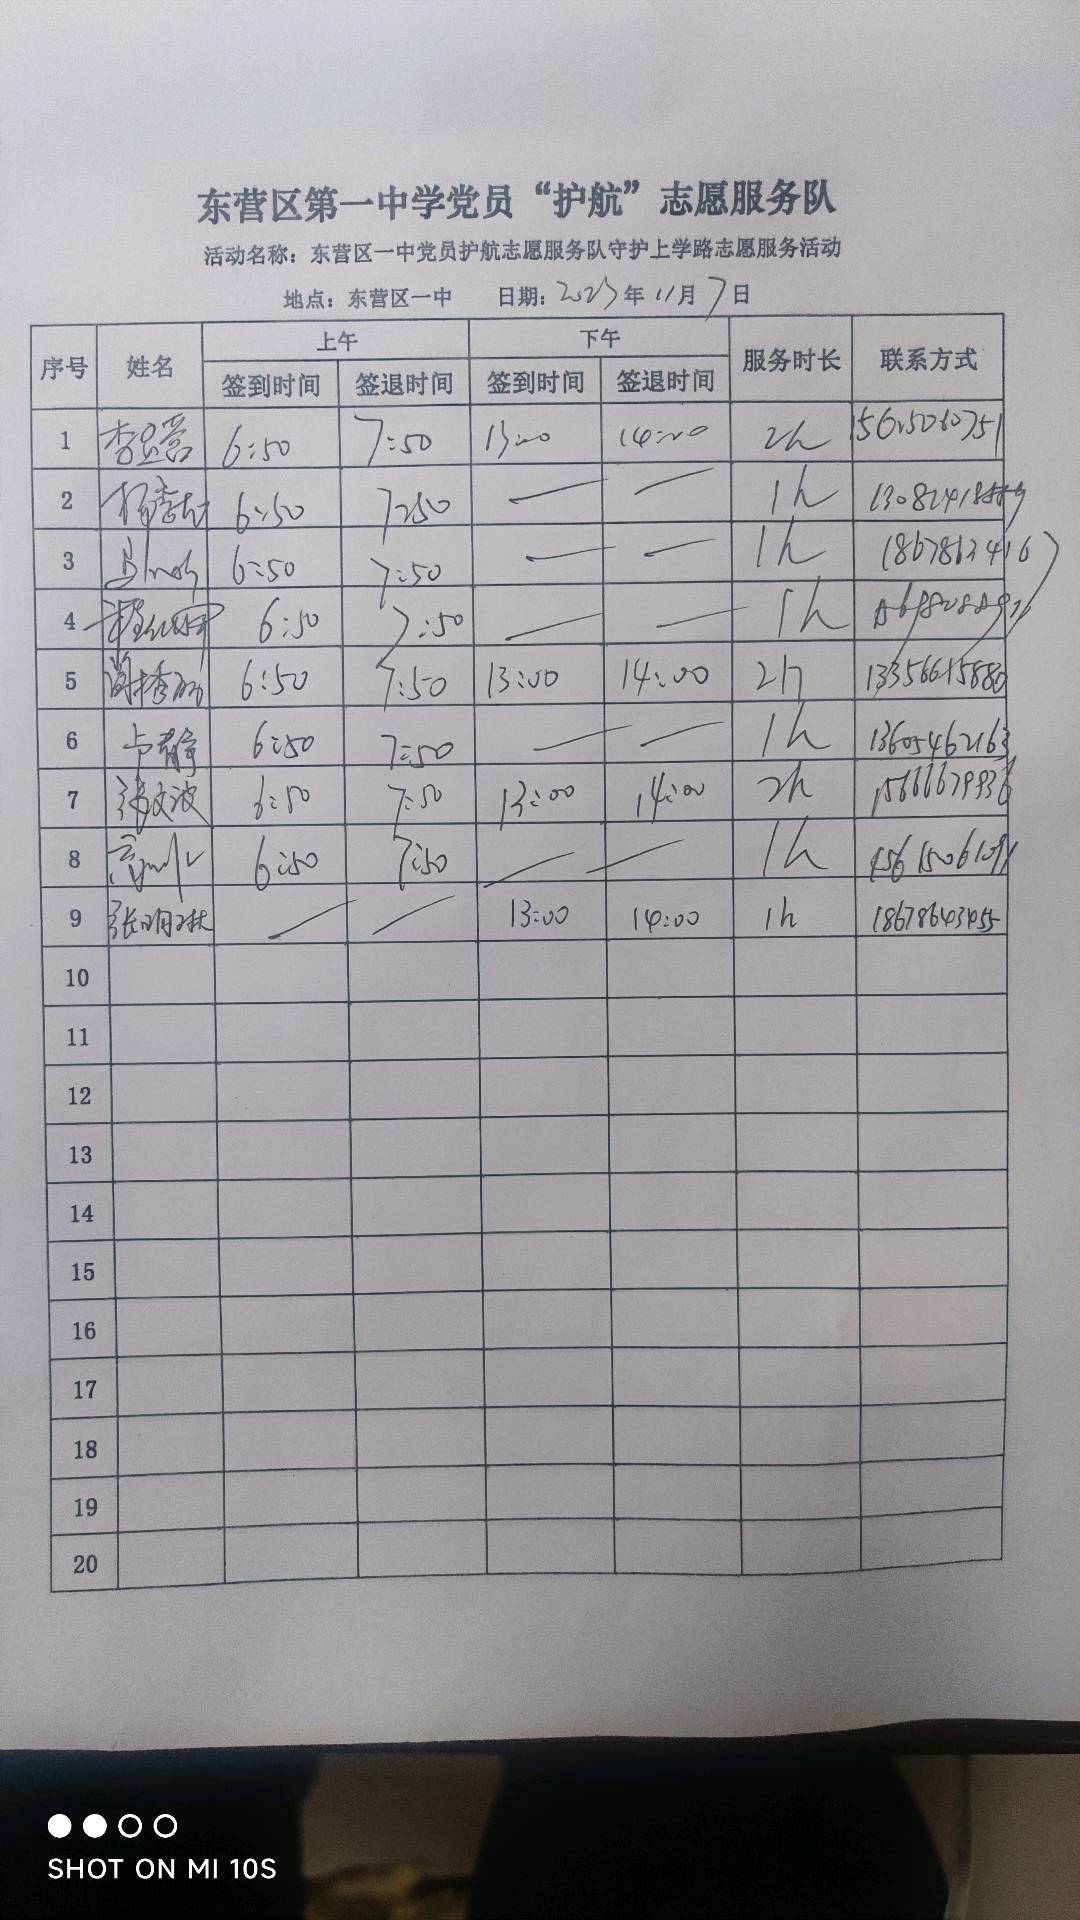 东营区第一中学党员“护航”志愿服务队
活动名称：东营区一中党员护航志愿服务队守护上学路志愿服务活动
地点：东营区一中 日期：2023年11月7日
序号 姓名 上午 下午 服务时长 联系方式
签到时间 签退时间 签到时间 签退时间
1 6:50 7:50 13:00 14:00 2h
2 6:50 7:50 — — 1h
3 6:50 7:50 — — 1h
4 6:50 7:50 — — 1h
5 6:50 7:50 13:00 14:00 2h 13356615880
6 卢静 6:50 7:50 — — 1h 13605462163
7 张文波 6:50 7:50 13:00 14:00 2h 15666679936
8 6:50 7:50 — — 1h
9 张明琳 — — 13:00 14:00 1h 18678643455
10
11
12
13
14
15
16
17
18
19
20
SHOT ON MI 10S